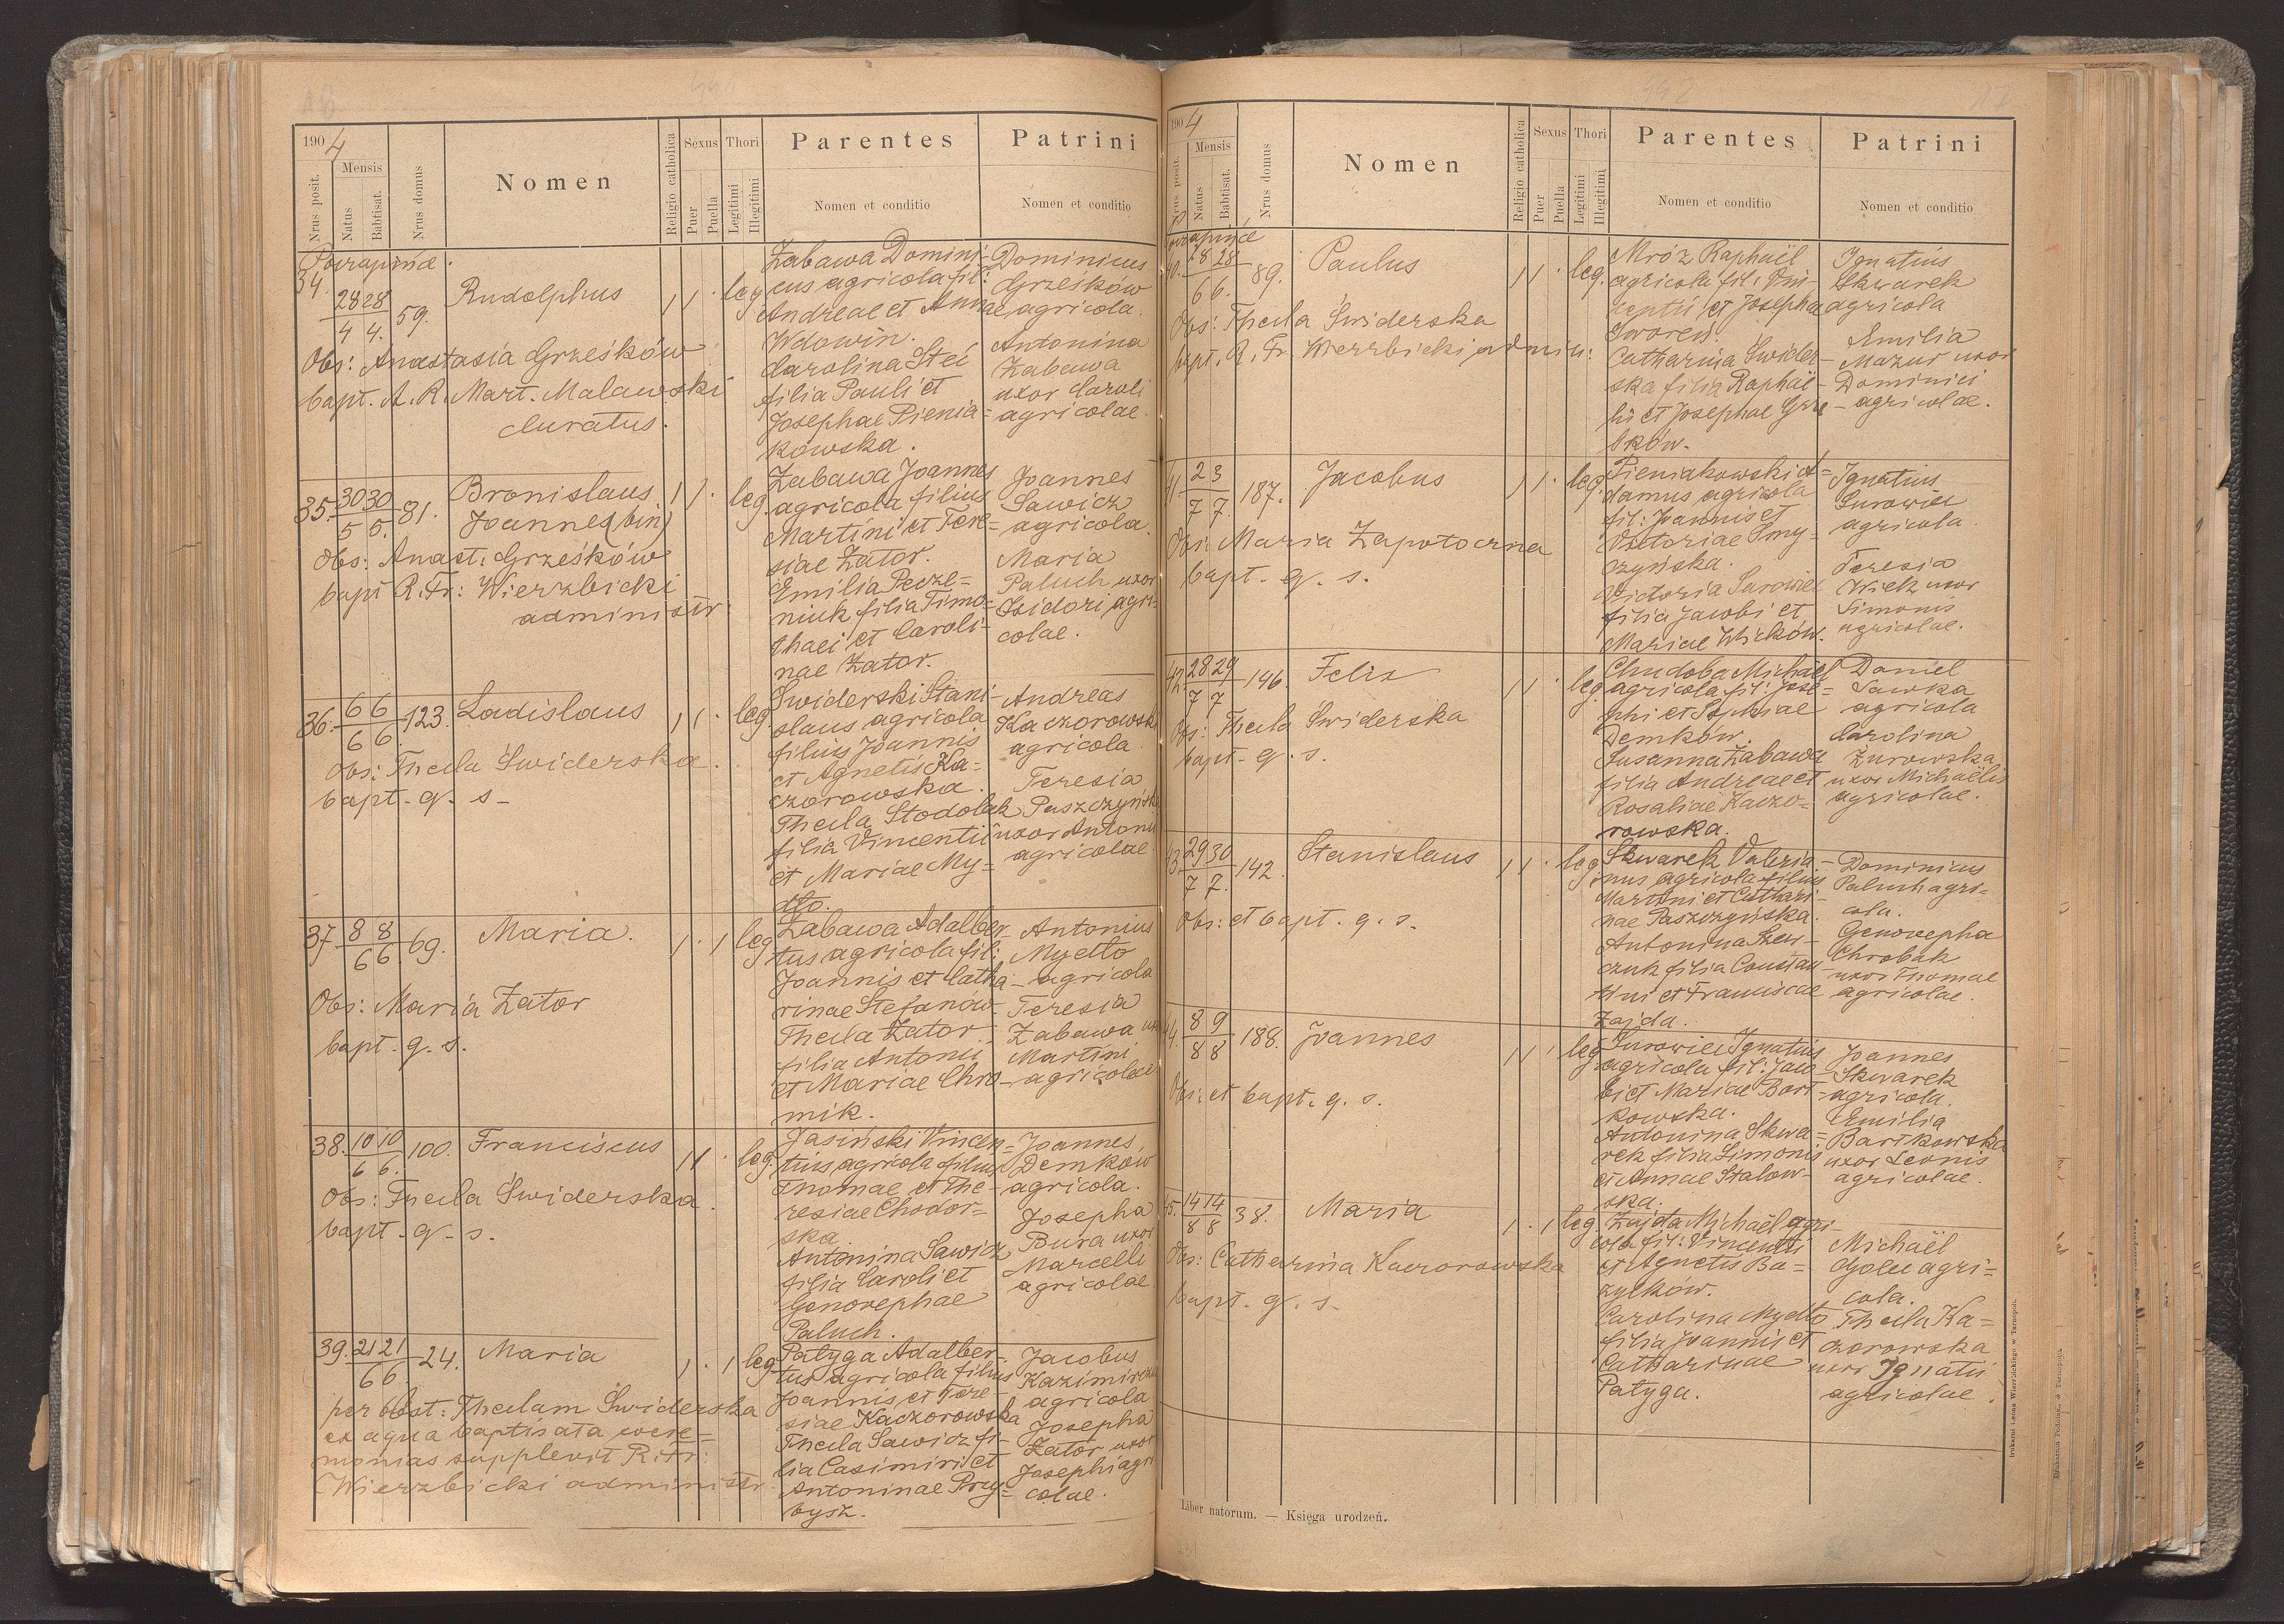 1904
Mensis
Nrus posit.
Natus
Babtisat.
Nrus domus
Nomen
Religio catholica
Sexus
Puer
Puella
Thori
Legitimi
Illegitimi
Parentes
Nomen et conditio
Patrini
Nomen et conditio
34.
28 28
4 4.
59.
Rudolphus
1 1 ·
leg
Zabawa Domini-
cus agricola fil:
Andreae et Annae
Wdowin.
Carolina Steć
filia Pauli et
Josephae Pienia=
kowska.
Dominicus
Grześków
agricola.
Antonina
Zabawa
uxor Caroli
agricolae.
Obs: Anastasia Grześków
bapt. A. R. Mart. Malawski
Curatus.
35.
30 30
5 5.
81.
Bronislaus
Joannes (bin)
1 1 ·
leg.
Zabawa Joannes
agricola filius
Martini et Tere=
siae Zator.
Emilia Pecze=
niuk filia Timo=
thaei et Caroli-
nae Zator.
Joannes
Sawicz
agricola.
Maria
Paluch uxor
Isidori agri-
colae.
Obs: Anast: Grześków
bapt R. Fr: Wierzbicki
administr.
36.
6 6
6 6
123.
Ladislaus
1 1 ·
leg.
Swiderski Stani-
slaus agricola
filius Joannis
et Agnetis Ka=
czorowska.
Thecla Stodolak
filia Vincentii
et Mariae My=
dło.
Andreas
Kaczorowski
agricola.
Teresia
Paszczyńska
uxor Antonii
agricolae
Obs: Thecla Świderska.
bapt. q. s-
37.
8 8
6 6.
69.
Maria.
1 · 1
leg
Zabawa Adalber-
tus agricola fil:
Joannis et Catha-
rinae Stefanów.
Thecla Zator
filia Antonii
et Mariae Chro-
mik.
Antonius
Mydło
agricola
Teresia
Zabawa uxor
Martini
agricolae
Obs: Maria Zator
bapt. q. s.
38.
10 10
6 6.
100.
Franciscus
1 1 ·
leg.
Jasiński Vincen=
tius agricola filius
Thomae et The-
resiae Chodor=
ska
Antonina Sawicz
filia Caroli et
Genovephae
Paluch.
Joannes
Demków
agricola.
Josepha
Bura uxor
Marcelli
agricolae
Obs: Thecla Świderska.
bapt. q. s.
39.
21 21
6 6
24.
Maria
1 · 1
leg
Patyga Adalber-
tus agricola filius
Joannis et Tere-
siae Kaczorowska
Thecla Sawicz fi-
lia Casimiri et
Antoninae Przy=
bysz.
Jacobus
agricola
Josepha
Zator uxor
Josephi agri
colae.
per Obst: Theclam Świderska
ex aqua baptisata cere=
monias supplevit R. Fr:
Wierzbicki administr.
1904
Nrus posit.
Mensis
Natus
Babtisat.
Nrus domus
Nomen
Religio catholica
Sexus
Puer
Puella
Thori
Legitimi
Illegitimi
Parentes
Nomen et conditio
Patrini
Nomen et conditio
40.
28 28
6 6.
89.
Paulus
1 1 ·
leg.
Mróz Raphaël
agricola fil: Vin-
centii et Josepha
Catharina Świder-
ska filia Raphaë-
lis et Josephae Grze
śków.
Ignatius
Skwarek
agricola
Emilia
Mazur uxor
Dominici
agricolae.
Obs: Thecla Świderska
bapt. R. Fr. Wierzbicki admin:
41
2 3
7 7.
187.
Jacobus
1 1 ·
leg.
Pieniakowski A=
damus agricola
fil: Joannis et
Victoriae Smy-
czyńska.
Victoria Surowiec
filia Jacobi et
Mariae Wicków.
Ignatius
Surowiec
agricola.
Teresia
Wilk uxor
Simonis
agricolae.
Obs: Maria Zapotoczna
bapt. q. s.
42
28 29
7 7
146.
Felix
1 1 ·
leg.
Chudoba Michaël
agricola fil: Jose=
phi et Sophiae
Demków.
Susanna Zabawa
filia Andreae et
Rosaliae Kaczo=
rowska.
Daniel
Sawka
agricola
Carolina
Żurowska
uxor Michaëlis
agricolae.
Obs: Thecla Świderska
bapt. q. s.
43
29 30
7 7.
142.
Stanislaus
1 1 ·
leg
Skwarek Valeria-
nus agricola filius
Martini et Cathari-
nae Paszczyńska.
Antonina Szew-
czuk filia Constan-
tini et Franciscae
Zajda.
Dominicus
Paluch agri=
cola.
Genovepha
Chrobak
uxor Thomae
agricolae.
Obs: et bapt. q. s.
44.
8 9
8 8
188.
Joannes
1 1 ·
leg
Surowiec Ignatius
agricola fil: Jaco-
bi et Mariae Bart-
kowska.
Antonina Skwa=
rek filia Simonis
et Annae Stalow-
ska.
Joannes
Skwarek
agricola.
Emilia
Bartkowska
uxor Leonis
agricolae.
Obs: et bapt. q. s.
45.
14 14
8 8
38.
Maria
1 · 1
leg.
Zajda Michaël agri-
cola fil: Vincentii
et Agnetis Ba=
zylków.
Carolina Mydło
filia Joannis et
Catharinae
Patyga.
Michaël
Golec agri=
cola.
Thecla Ka=
czorowska
uxor Ignatii
agricolae.
Obs: Catharina Kaczorowska
bapt. q. s.
Liber natorum. — Księga urodzeń.
Drukarni Leona Wierzbickiego w Tarnopolu.